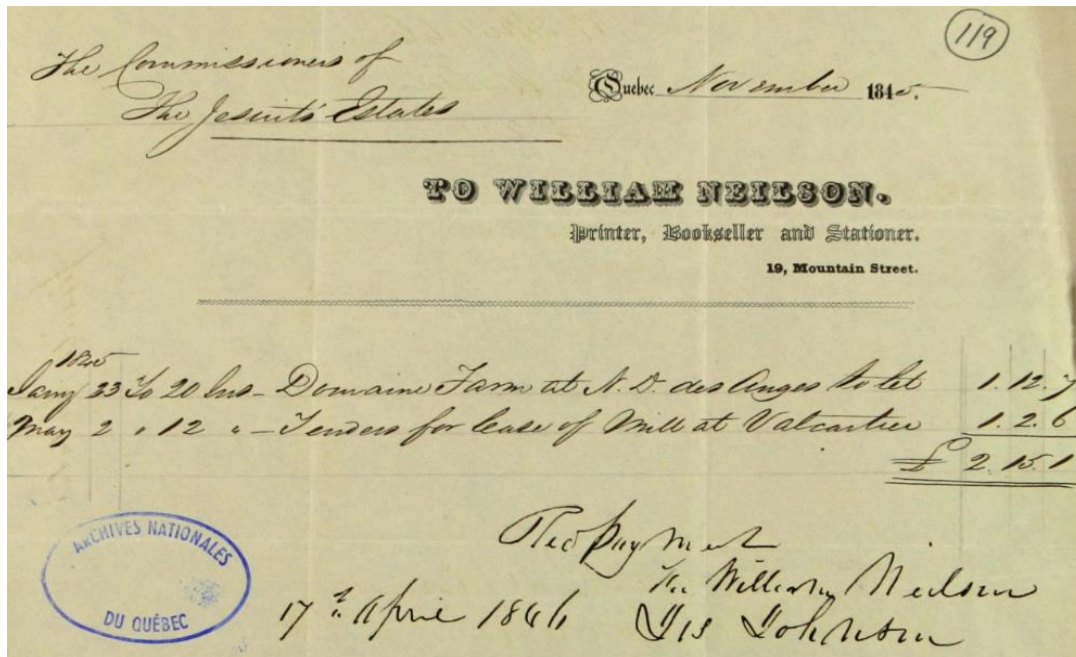 119
The Commissioners of
The Jesuits' Estates
Quebec November 1845.
TO WILLIAM NEILSON.
Printer, Bookseller and Stationer.
19, Mountain Street.
1845
Jany 23 To 20 Ins - Domaine Farm at N. D. des Anges to let 1. 12. 7
May 2 " 12 " - Tenders for lease of Mill at Valcartier 1. 2. 6
£ 2. 15. 1
Recd Payment
For William Neilson
17th April 1846 Johnson
ARCHIVES NATIONALES
DU QUÉBEC